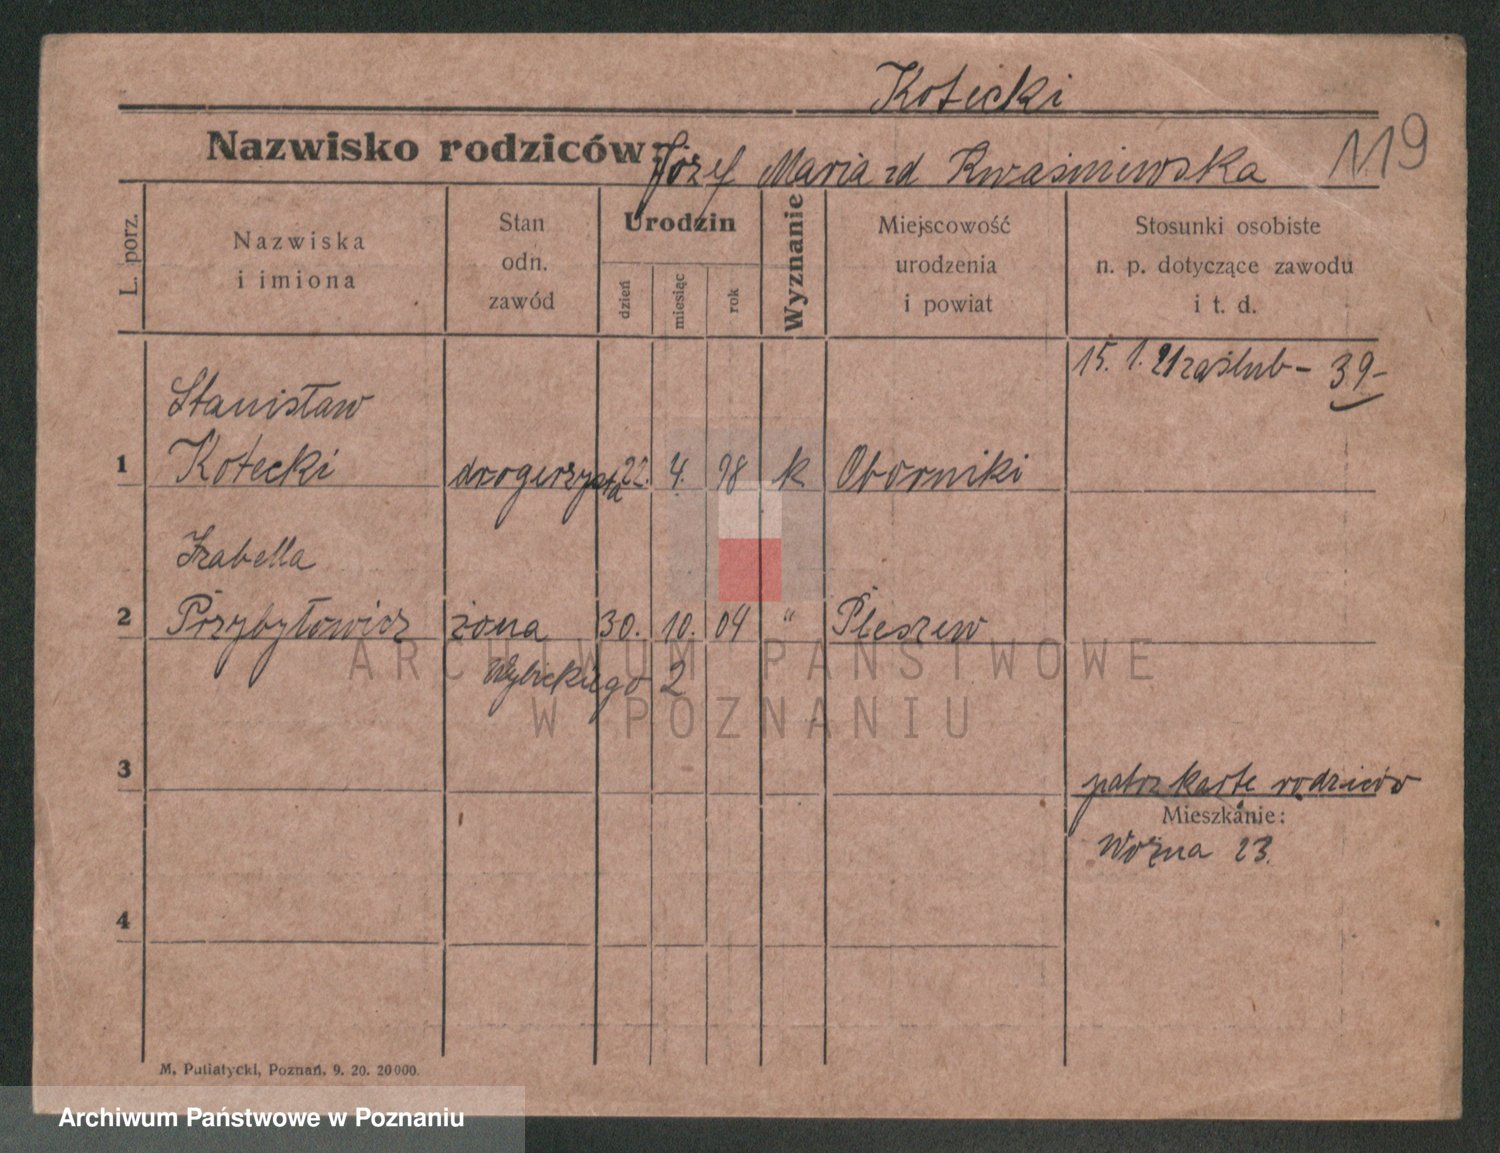 Kotecki
Nazwisko rodziców: Józef Maria zd Kwaśniewska 119
L. porz.
Nazwiska i imiona
Stan odn. zawód
Urodzin
dzień miesiąc rok
Wyznanie
Miejscowość urodzenia i powiat
Stosunki osobiste n. p. dotyczące zawodu i t. d.
15. 1. 21 zaślub – 39-
Stanisław
1 Kotecki drogerzysta 22. 4. 98 k Oborniki
Izabella
2 Przybyłowicz żona 30. 10. 04 " Pleszew
Wybickiego 2
3
patrz kartę rodziców
Mieszkanie:
Woźna 23.
4
M. Putiatycki, Poznań. 9. 20. 20000.
ARCHIWUM PAŃSTWOWE
W POZNANIU
Archiwum Państwowe w Poznaniu